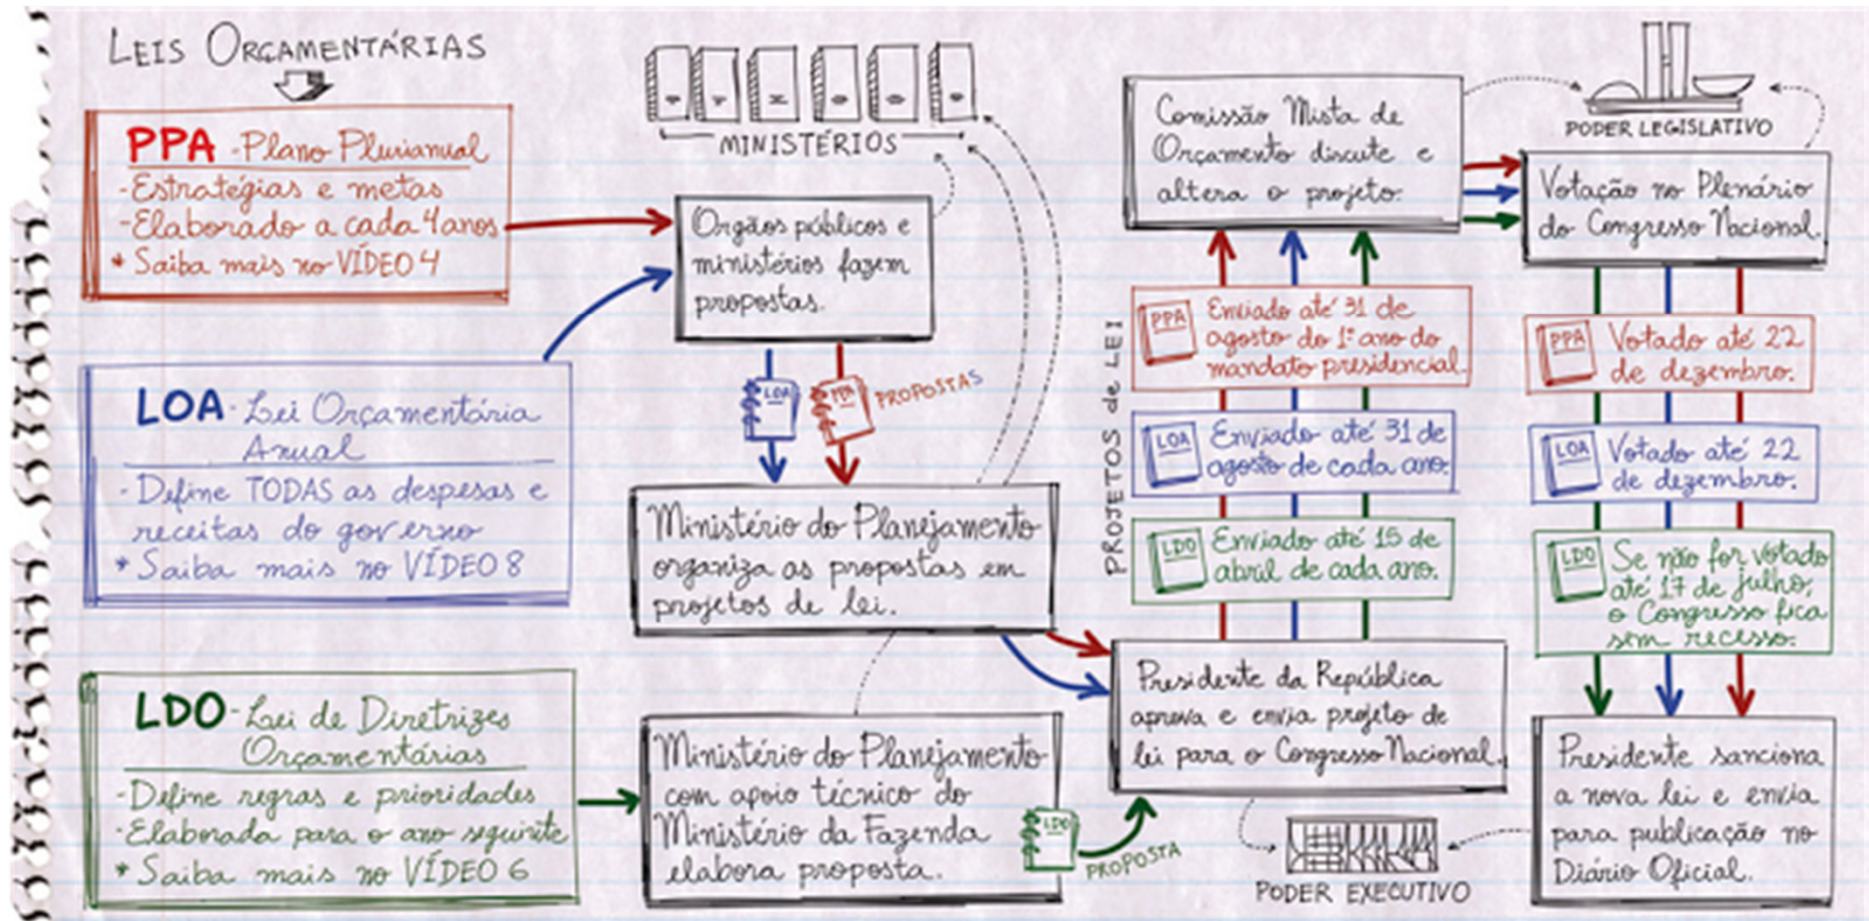 LEIS ORÇAMENTÁRIAS
PPA - Plano Plurianual
- Estratégias e metas
- Elaborado a cada 4 anos
* Saiba mais no VÍDEO 4
LOA - Lei Orçamentária
Anual
- Define TODAS as despesas e
receitas do governo
* Saiba mais no VÍDEO 8
LDO - Lei de Diretrizes
Orçamentárias
- Define regras e prioridades
- Elaborada para o ano seguinte
* Saiba mais no VÍDEO 6
MINISTÉRIOS
Orgãos públicos e
ministérios fazem
propostas.
LOA
PPA
PROPOSTAS
Ministério do Planejamento
organiza as propostas em
projetos de lei.
Ministério do Planejamento
com apoio técnico do
Ministério da Fazenda
elabora proposta.
LDO
PROPOSTA
Comissão Mista de
Orçamento discute e
altera o projeto.
PROJETOS de LEI
PPA
Enviado até 31 de
agosto do 1º ano do
mandato presidencial.
LOA
Enviado até 31 de
agosto de cada ano.
LDO
Enviado até 15 de
abril de cada ano.
Presidente da República
aprova e envia projeto de
lei para o Congresso Nacional.
PODER EXECUTIVO
PODER LEGISLATIVO
Votação no Plenário
do Congresso Nacional.
PPA
Votado até 22
de dezembro.
LOA
Votado até 22
de dezembro.
LDO
Se não for votado
até 17 de julho,
o Congresso fica
sem recesso.
Presidente sanciona
a nova lei e envia
para publicação no
Diário Oficial.